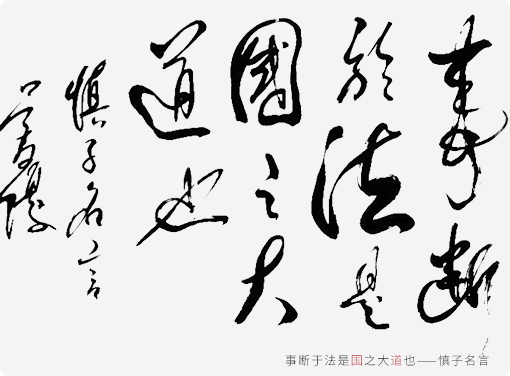 事断
於法是
國之大
道也
慎子名言
事断于法是国之大道也——慎子名言